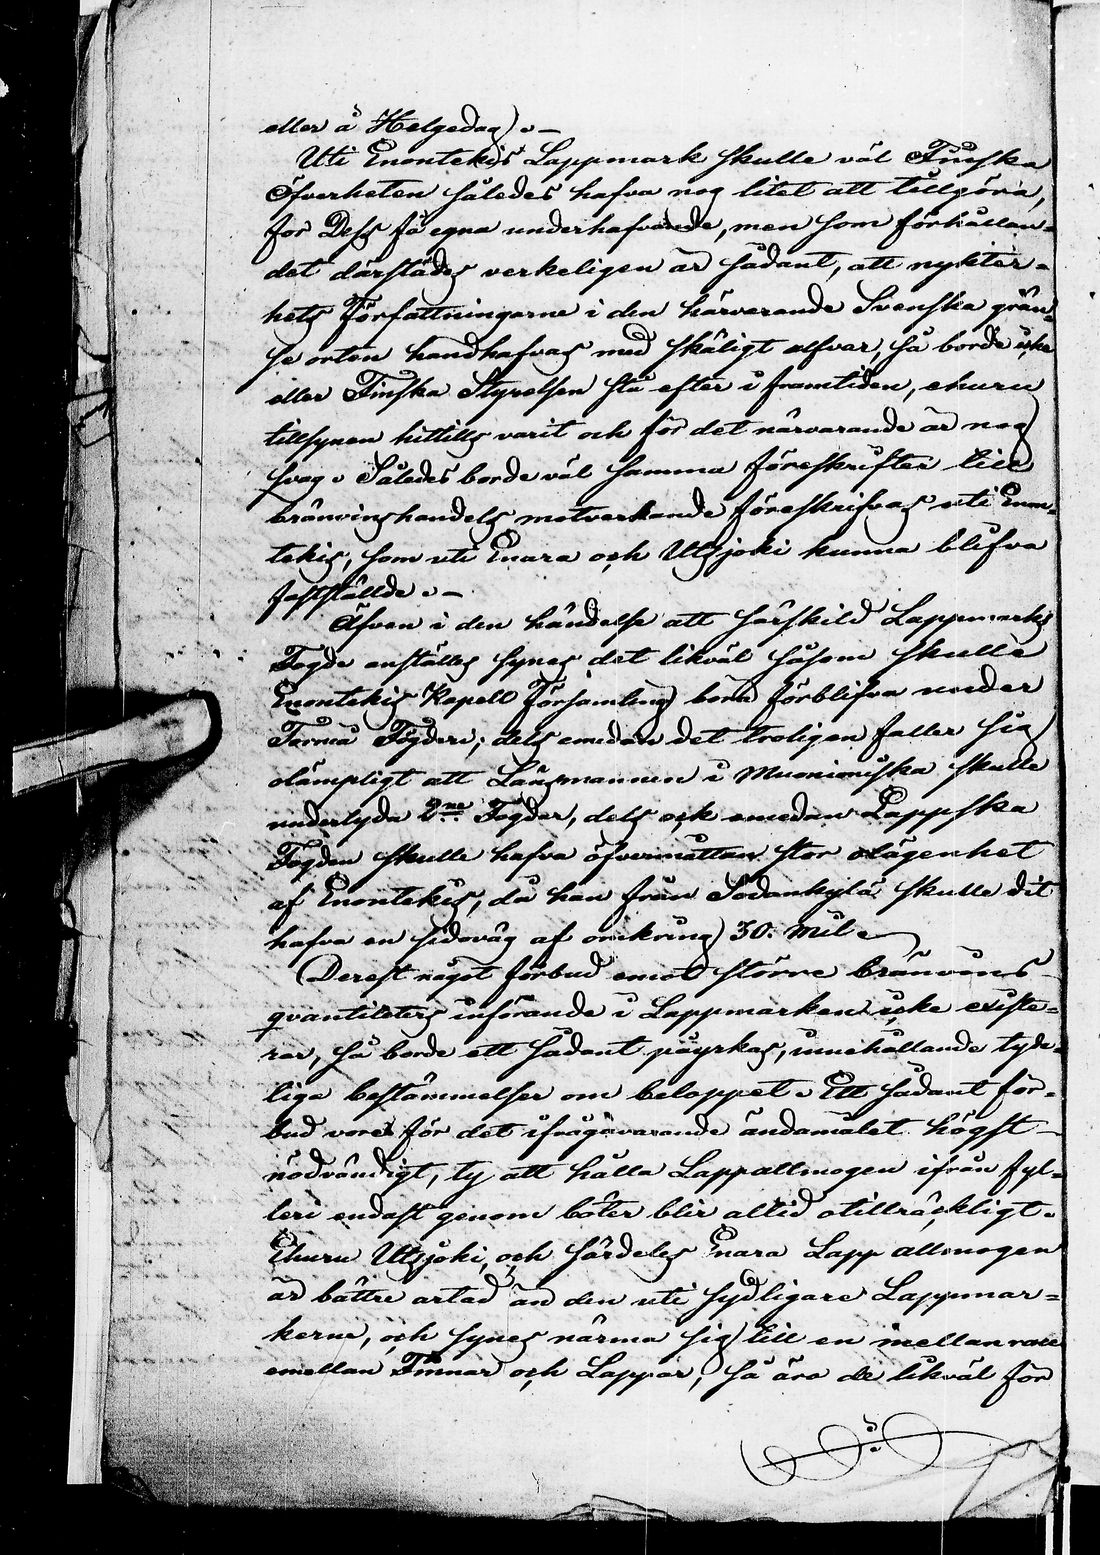 eller å Helgedag). –
Uti Enontekis Lappmark skulle väl Finska
Öfverheten således hafva nog litet att tillgöra,
för Dess få egna underhafvande, men som förhållan-
det därstädes verkeligen är sådant, att nykter-
hets Författningarne i den härvarande Svenska grän-
se orten handhafvas med skäligt alfvar, så borde icke
eller Finska Styrelsen stå efter i framtiden, ehuru
tillsynen hittills varit och för det närvarande är nog
svag. Således borde väl samma föreskrifter till
bränvinshandels motverkande föreskrifvas uti Enon-
tekis, som uti Enara och Utsjoki kunna blifva
fastställde. –
Äfven i den händelse att särskild Lappmarks
Fogde anställes synes det likväl såsom skulle
Enontekis Kapell Församling böra förblifva under
Torneå Fögderi; dels emedan det troligen faller sig
olämpligt att Länsmannen i Muonioniska skulle
underlyda 2ne Fogder, dels ock emedan Lappska
Fogden skulle hafva öfvermåttan stor olägenhet
af Enontekis, då han från Sodankylä skulle dit
hafva en sidoväg af omkring 30. mil.
Derest något förbud emot större bränvins-
qvantiteters införande i Lappmarken icke existe-
rar, så borde ett sådant påyrkas, innehållande tyde-
liga bestämmelser om beloppet. Ett sådant för-
bud vore för det ifrågavarande ändamålet högst
nödvändigt, ty att hålla Lappallmogen ifrån fyl-
leri endast genom böter blir altid otillräckligt.
Ehuru Utsjoki, och särdeles Enara Lapp allmogen
är bättre artad än den uti sydligare Lappmar-
kerne, och synes närma sig till en mellan race
emellan Finnar och Lappar, så äro de likväl för